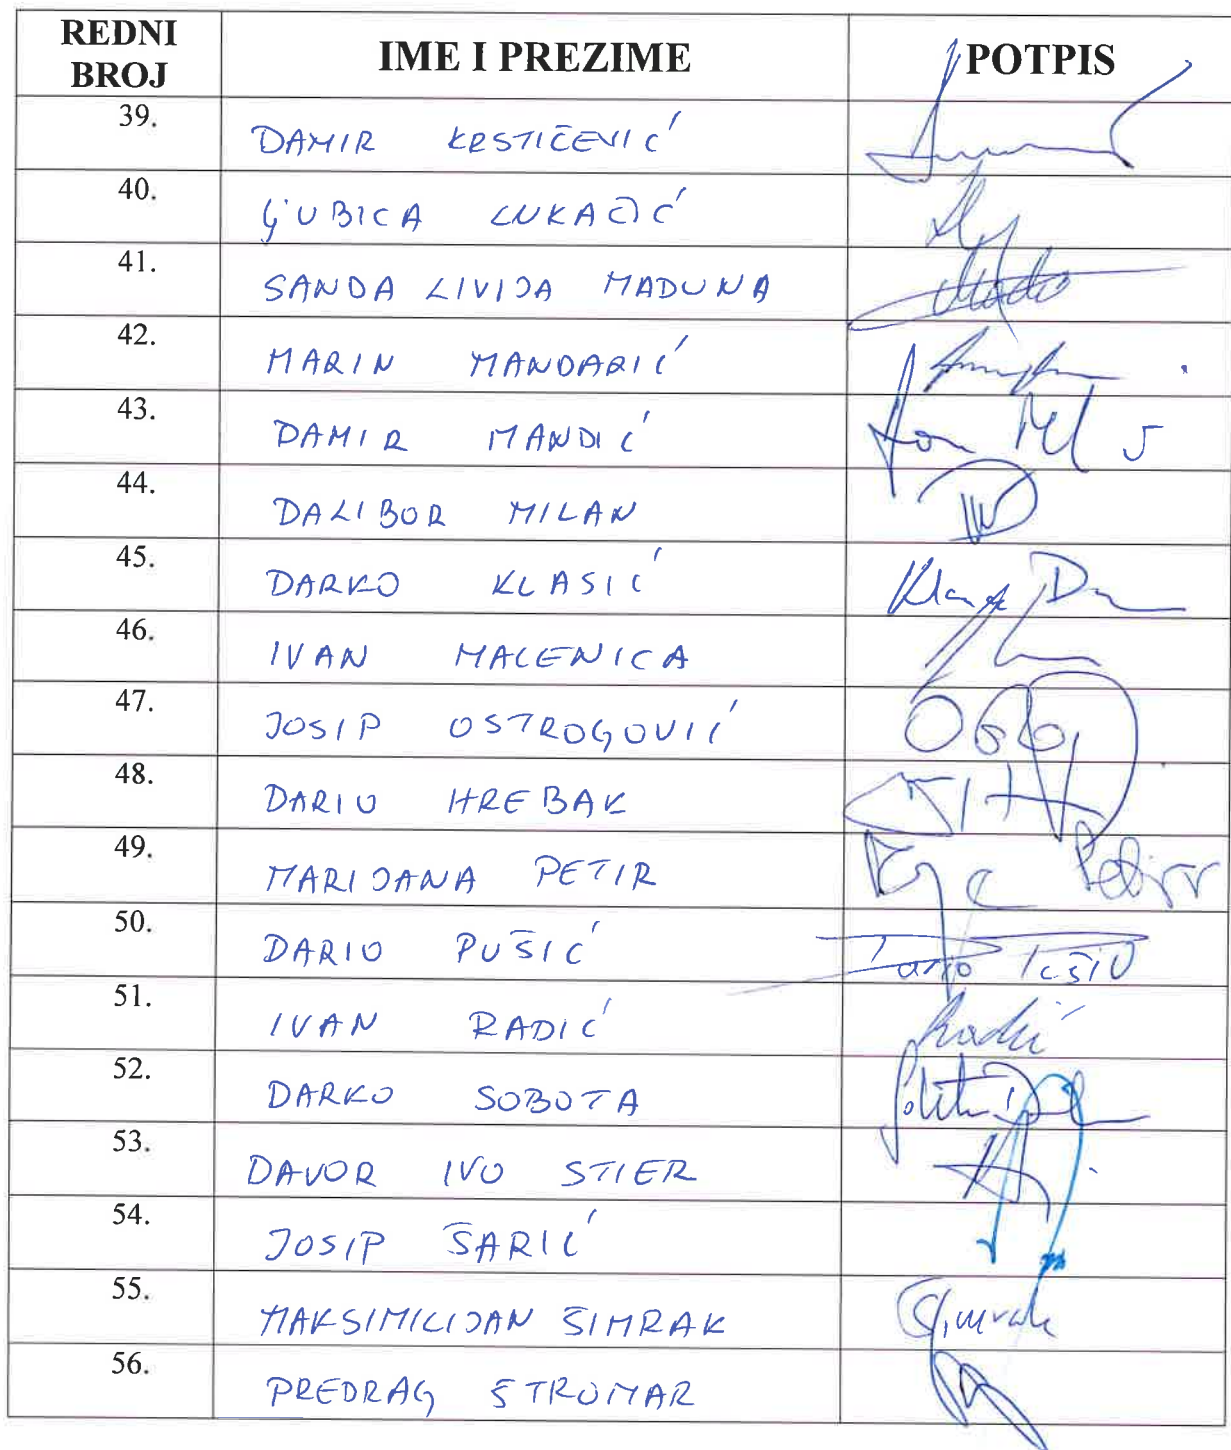 REDNI BROJ IME I PREZIME POTPIS
39. DAMIR KRSTIČEVIĆ
40. LJUBICA LUKAČIĆ
41. SANDA LIVIJA MADUNA
42. MARIN MANDARIĆ
43. DAMIR MANDIĆ
44. DALIBOR MILAN
45. DARKO KLASIĆ
46. IVAN MALENICA
47. JOSIP OSTROGOVIĆ
48. DARIO HREBAK
49. MARIJANA PETIR Petir
50. DARIO PUŠIĆ
51. IVAN RADIĆ Radić
52. DARKO SOBOTA
53. DAVOR IVO STIER
54. JOSIP ŠARIĆ
55. MAKSIMILIJAN ŠIMRAK Šimrak
56. PREDRAG ŠTROMAR